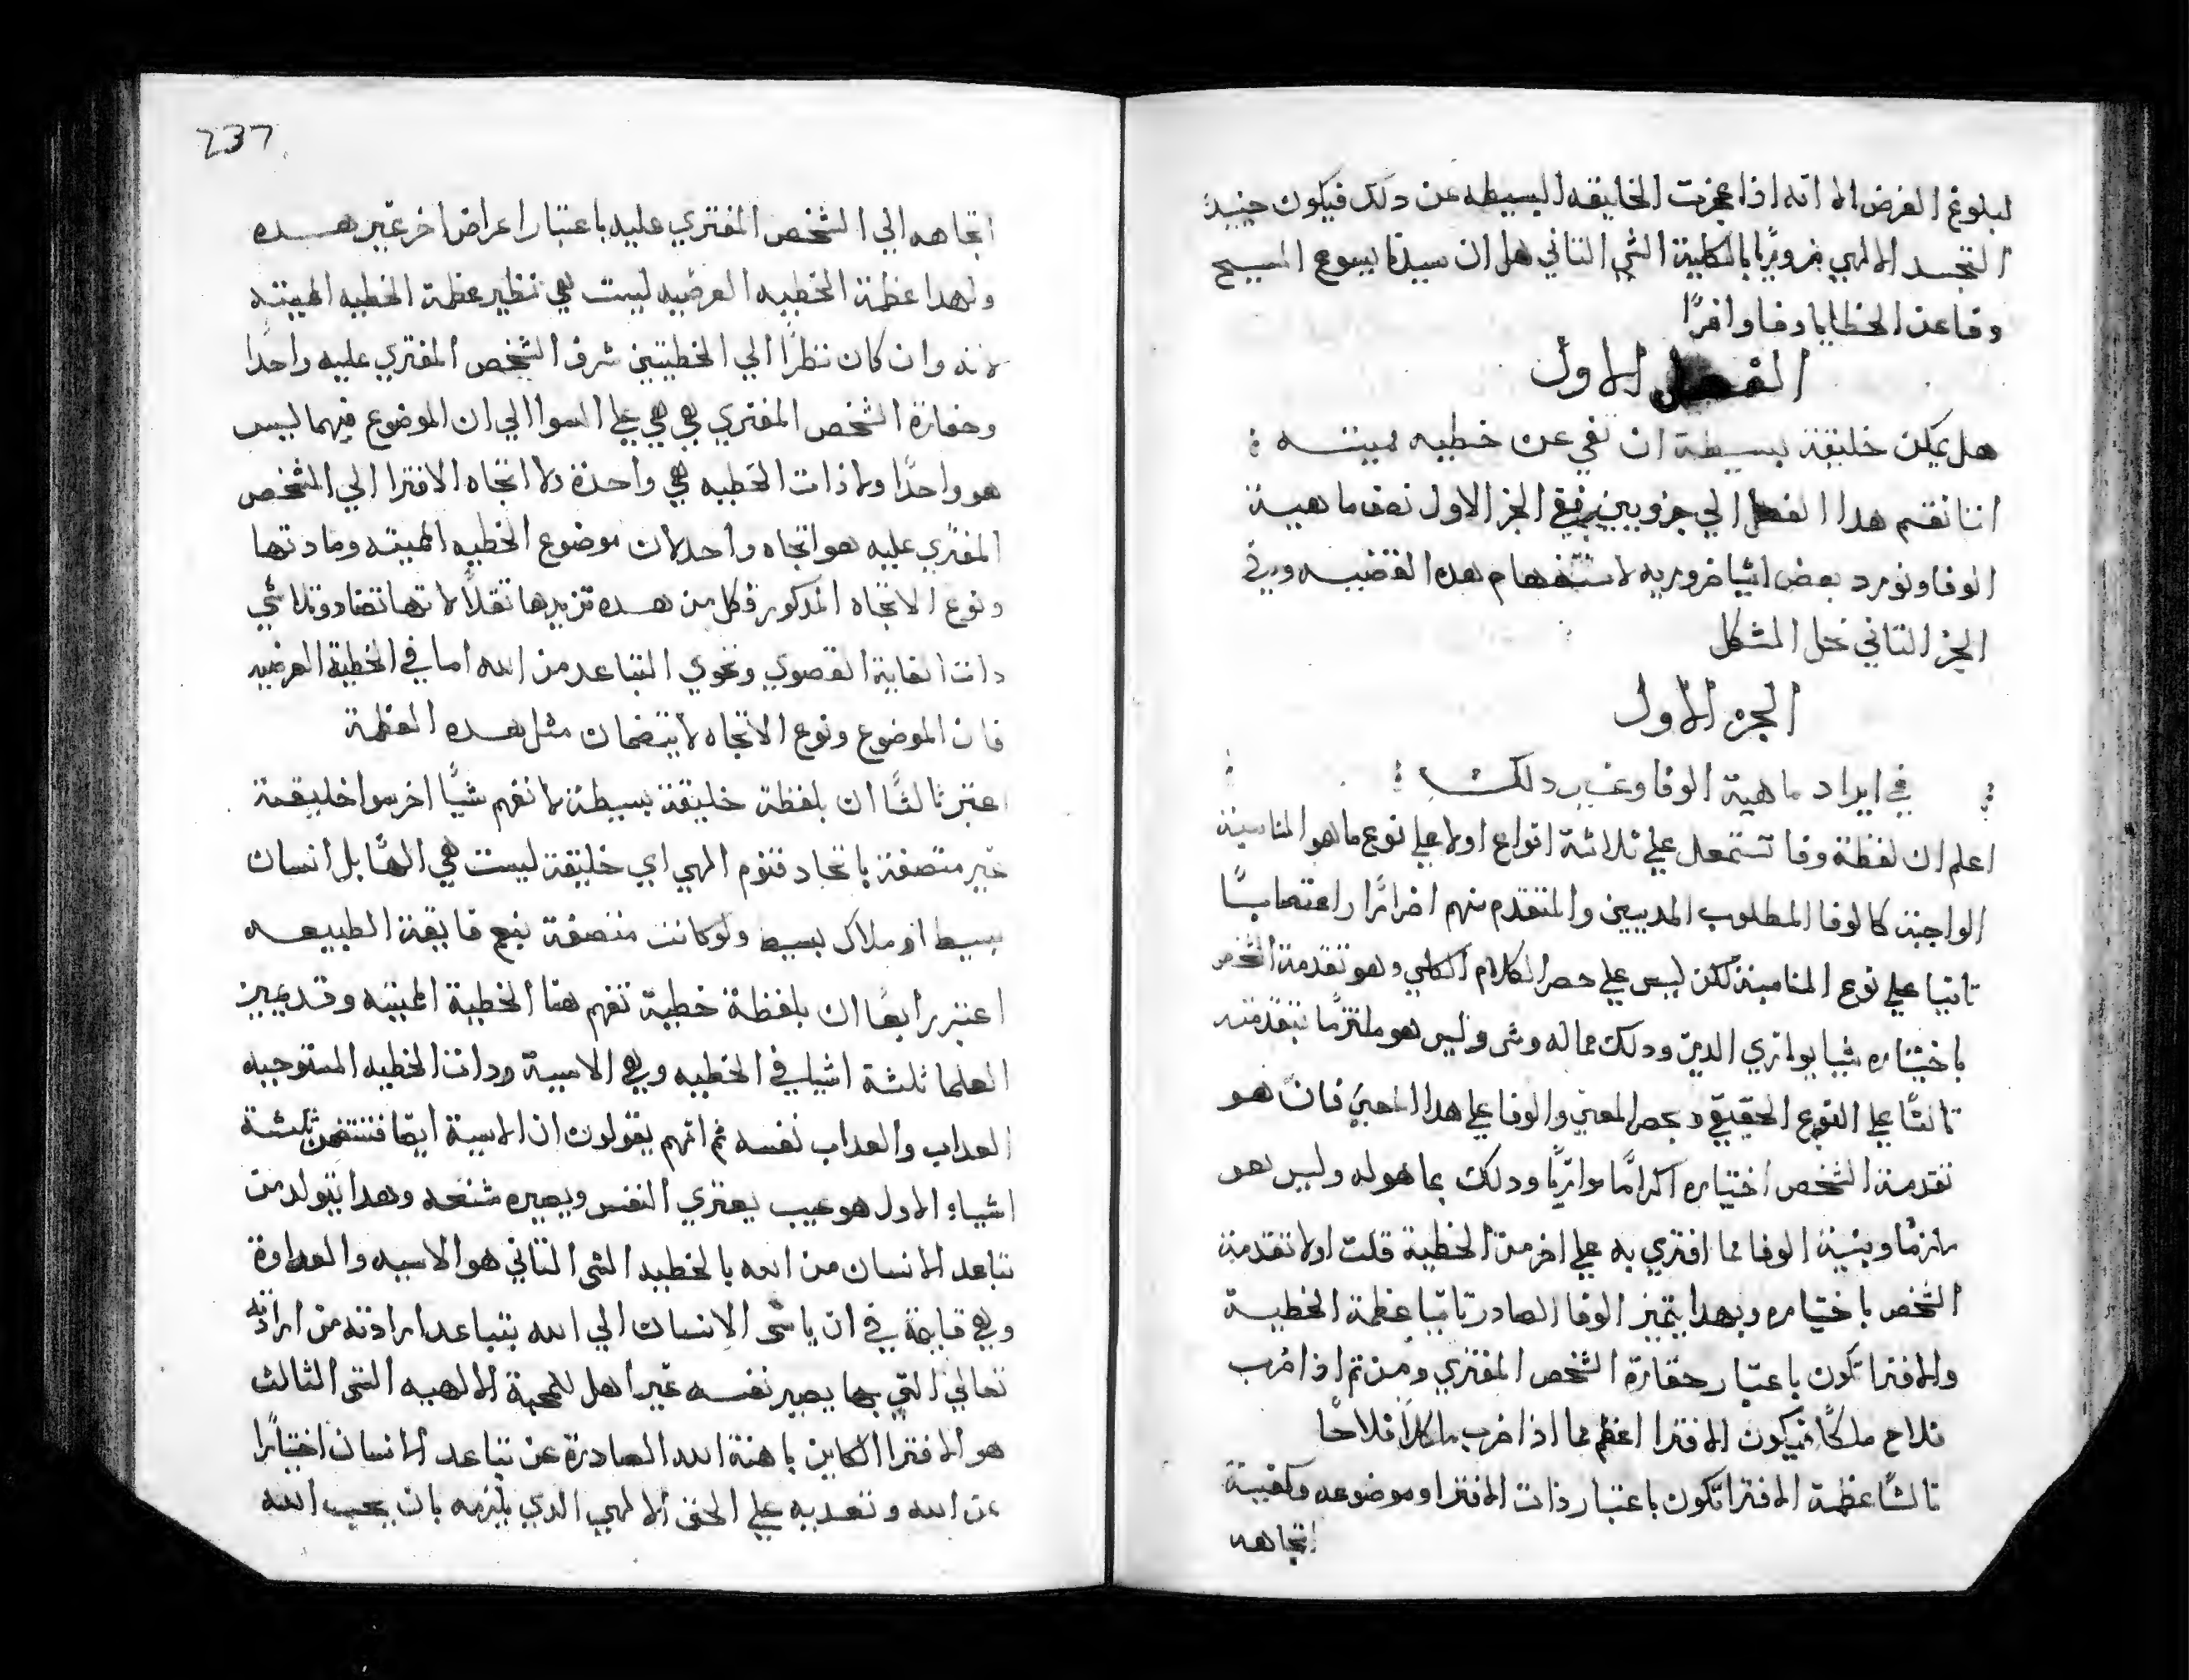 لبلوغ الغرض الا انه اذا عجزت الخليقه البسيطه عن دلك فيكون حينيد
التجسد الالهي ضروريًا بالكلية الشي التاني هل ان سيدنا يسوع المسيح
وفا عن الخطايا وفا وافرًا
الفصل الاول
هل يمكن خليقة بسيطة ان تفي عن خطيه مميته :
اننا نقسم هدا الفصل الي جزويين ففي الجز الاول نصف ماهية
الوفا ونورد بعض اشيا ضروريه لاستفهام هده القضيه وفي
الجز التاني نحل المشكل
الجزء الاول
في ايراد ماهية الوفا وغير دلك :
اعلم ان لفظة وفا تستعمل علي ثلاثة انواع اولا علي نوع ما هو المناسبة
الواجبة كالوفا المطلوب المديين والمتقدم منهم اضرارًا واغتصابًا
تانيا علي نوع المناسبة لكن ليس علي حصر الكلام الكلي وهو تقدمة الشخص
باختياره شيا يوازي الدين ودلك مما له وليس هو ملتزمًا بتقدمته
تالتًا علي النوع الحقيقي وبحصر المعني والوفا علي هدا المعني فان هو
تقدمة الشخص اختياره اكرامًا موازيًا ودلك بما هوله وليس هو
ملزمًا وبنية الوفا مما افتري به علي اخر من الخطية قلت اولا تقدمة
الشخص باختياره وبهدا يتميز الوفا الصادر تانيا عظمة الخطية
والافترا تكون باعتبار حقارة الشخص المفتري ومن تم اذا ضرب
فلاح ملكًا فيكون الافترا اعظم مما اذا ضرب ملكًا فلاحًا
تالتًا عظمة الافترا تكون باعتبار ذات الافترا وموضوعه وكيفية
اتجاهه
237
اتجاهه الي الشخص المفتري عليه باعتبار اعراض اخر غير هده
ولهدا عظمة الخطيه العرضيه ليست هي نظير عظمة الخطيه المميته
لانه وان كان نظرًا الي الخطيتين شرف الشخص المفتري عليه واحدًا
وحقارة الشخص المفتري هي هي علي السوا الي ان الموضوع فيهما ليس
هو واحدًا ولا ذات الخطيه هي واحدة ولا اتجاه الافترا الي الشخص
المفتري عليه هو اتجاه واحد لان موضوع الخطيه المميته ومادتها
ونوع الاتجاه المدكور فكل من هده تزيدها تقلاً لانها تضاد وتلاشي
دات الغاية القصوي وتحوي التباعد من الله اما في الخطية العرضيه
فان الموضوع ونوع الاتجاه لا يتضمان مثل هده العظمة
اعتبر ثالثًا ان بلفظة خليقة بسيطة لا نفهم شيًا اخر سوا خليقة
غير متصفة باتحاد قنوم الهي اي خليقة ليست هي الهًا بل انسان
بسيط او ملاك بسيط ولو كانت متصفة بنعم فايقة الطبيعه
اعتبر رابعًا ان بلفظة خطية تفهم هنا الخطية المميته وقد يميز
العلما ثلثة اشيا في الخطيه وهي الاسية ودات الخطيه المستوجبه
العداب والعداب نفسه ثم انهم يقولون ان الاسية ايضًا فتتضمن ثلثة
اشياء الاول هو عيب يعتري النفس ويصيره شنعه وهدا يتولد من
تباعد الانسان من الله بالخطيه الشي التاني هو الاسيه والعداوة
وهي قايمة في ان ياشي الانسان الي الله بتباعد ارادته من ارادته
تعالي التي بها يصير نفسه غير اهل للمحبة الالهيه الشي الثالث
هو الافترا الكاين باهنة الله الصادرة عن تباعد الانسان اختيارًا
عن الله وتعديه علي الحق الالهي الدي يلزمه بان يحب الله